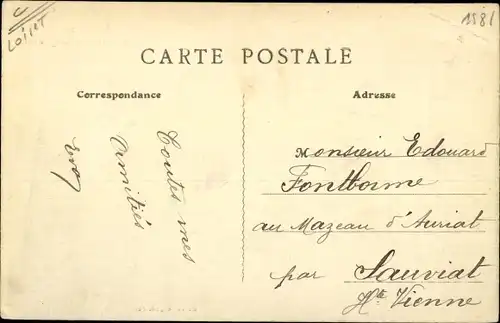 LOIRET
1581
CARTE POSTALE
Correspondance
Adresse
Toutes mes
Amitiés
Monsieur Edouard
Fontbonne
au Mazeau d'Auriat
par Sauviat
Hte Vienne